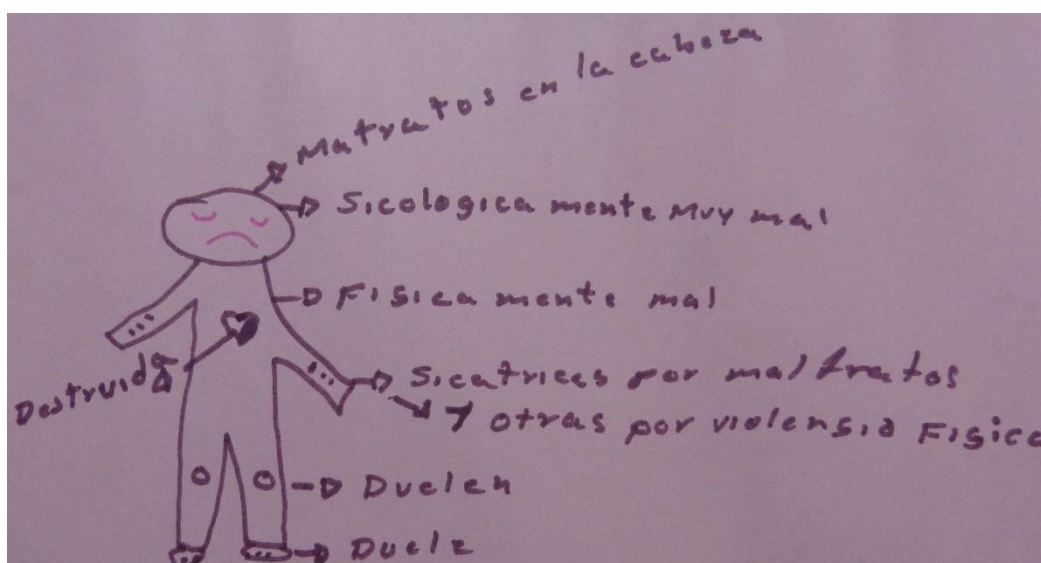 Matratos en la cabeza
Sicologica mente Muy mal
Fisica mente mal
Destruida
Sicatrices por maltratos
Y otras por violensia Fisica
Duelen
Duele